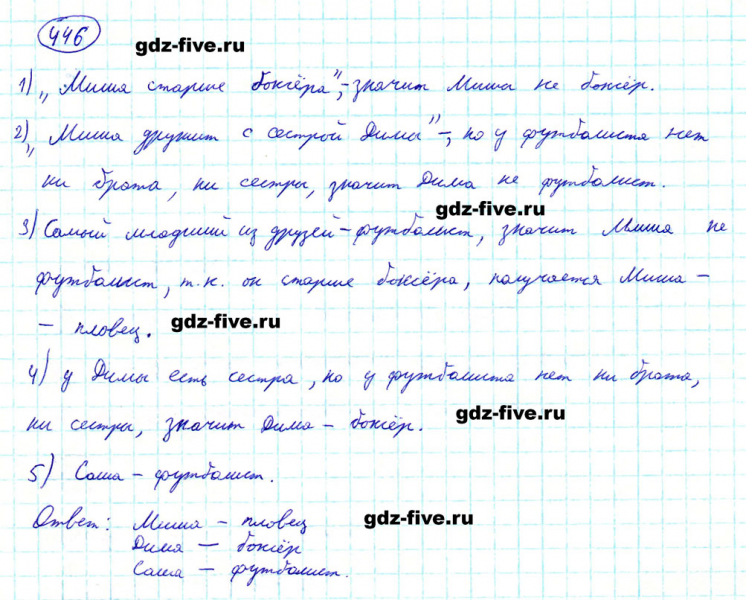 446
gdz-five.ru
1) „Миша старше боксёра", – значит Миша не боксёр.
2) „Миша дружит с сестрой Димы" –, но у футболиста нет
ни брата, ни сестры, значит Дима не футболист.
gdz-five.ru
3) Самый младший из друзей – футболист, значит Миша не
футболист, т.к. он старше боксёра, получается Миша –
– пловец.
gdz-five.ru
4) у Димы есть сестра, но у футболиста нет ни брата,
ни сестры, значит Дима – боксёр.
gdz-five.ru
5) Саша – футболист.
Ответ: Миша – пловец
gdz-five.ru
Дима – боксёр
Саша – футболист.